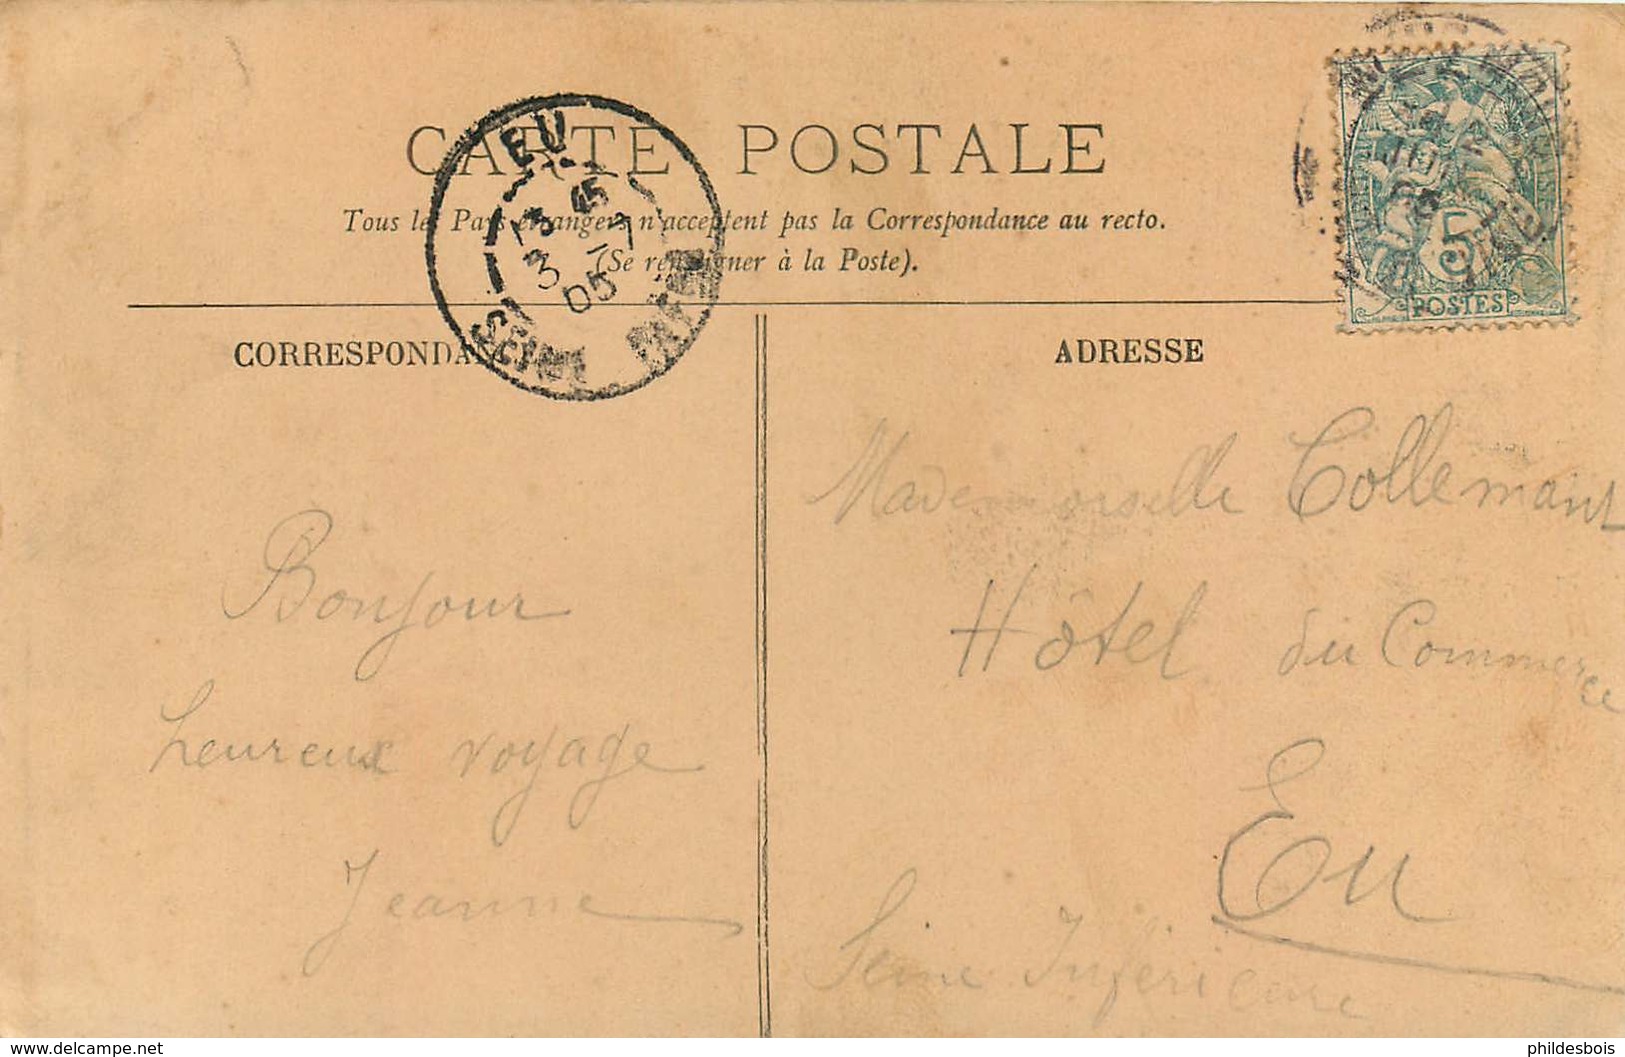 CARTE POSTALE
Tous les Pays étrangers n'acceptent pas la Correspondance au recto.
(Se renseigner à la Poste).
EU
45
3 7
05
SEINE
5
POSTES
CORRESPONDA
ADRESSE
Bonjour
heureux voyage
Jeanne
Mademoiselle Collemant
Hôtel du Commerce
Eu
Seine Inférieure
www.delcampe.net
phildesbois